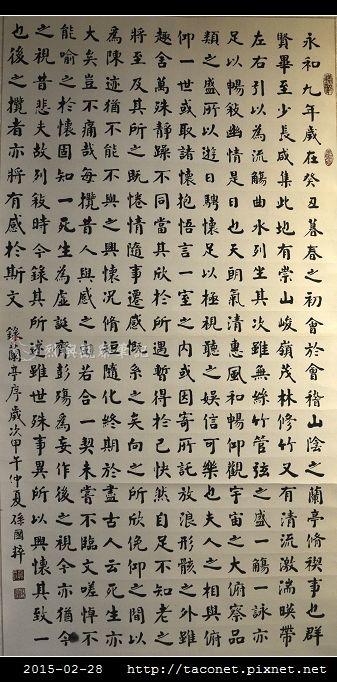 永和九年歲在癸丑暮春之初會於會稽山陰之蘭亭脩禊事也群
賢畢至少長咸集此地有崇山峻嶺茂林修竹又有清流激湍暎帶
左右引以為流觴曲水列坐其次雖無絲竹管弦之盛一觴一詠亦
足以暢敘幽情是日也天朗氣清惠風和暢仰觀宇宙之大俯察品
類之盛所以遊目騁懷足以極視聽之娛信可樂也夫人之相與俯
仰一世或取諸懷抱悟言一室之內或因寄所託放浪形骸之外雖
趣舍萬殊靜躁不同當其欣於所遇暫得於己快然自足不知老之
將至及其所之既惓情隨事遷感慨系之矣向之所欣俛仰之間以
為陳迹猶不能不以之興懷況脩短隨化終期於盡古人云死生亦
大矣豈不痛哉每攬昔人興感之由若合一契未嘗不臨文嗟悼不
能喻之於懷固知一死生為虛誕齊彭殤為妄作後之視今亦猶今
之視昔悲夫故列敘時人錄其所述雖世殊事異所以興懷其致一
也後之攬者亦將有感於斯文
錄蘭亭序歲次甲午仲夏孫國粹
2015-02-28 http://taconet.pixnet.net